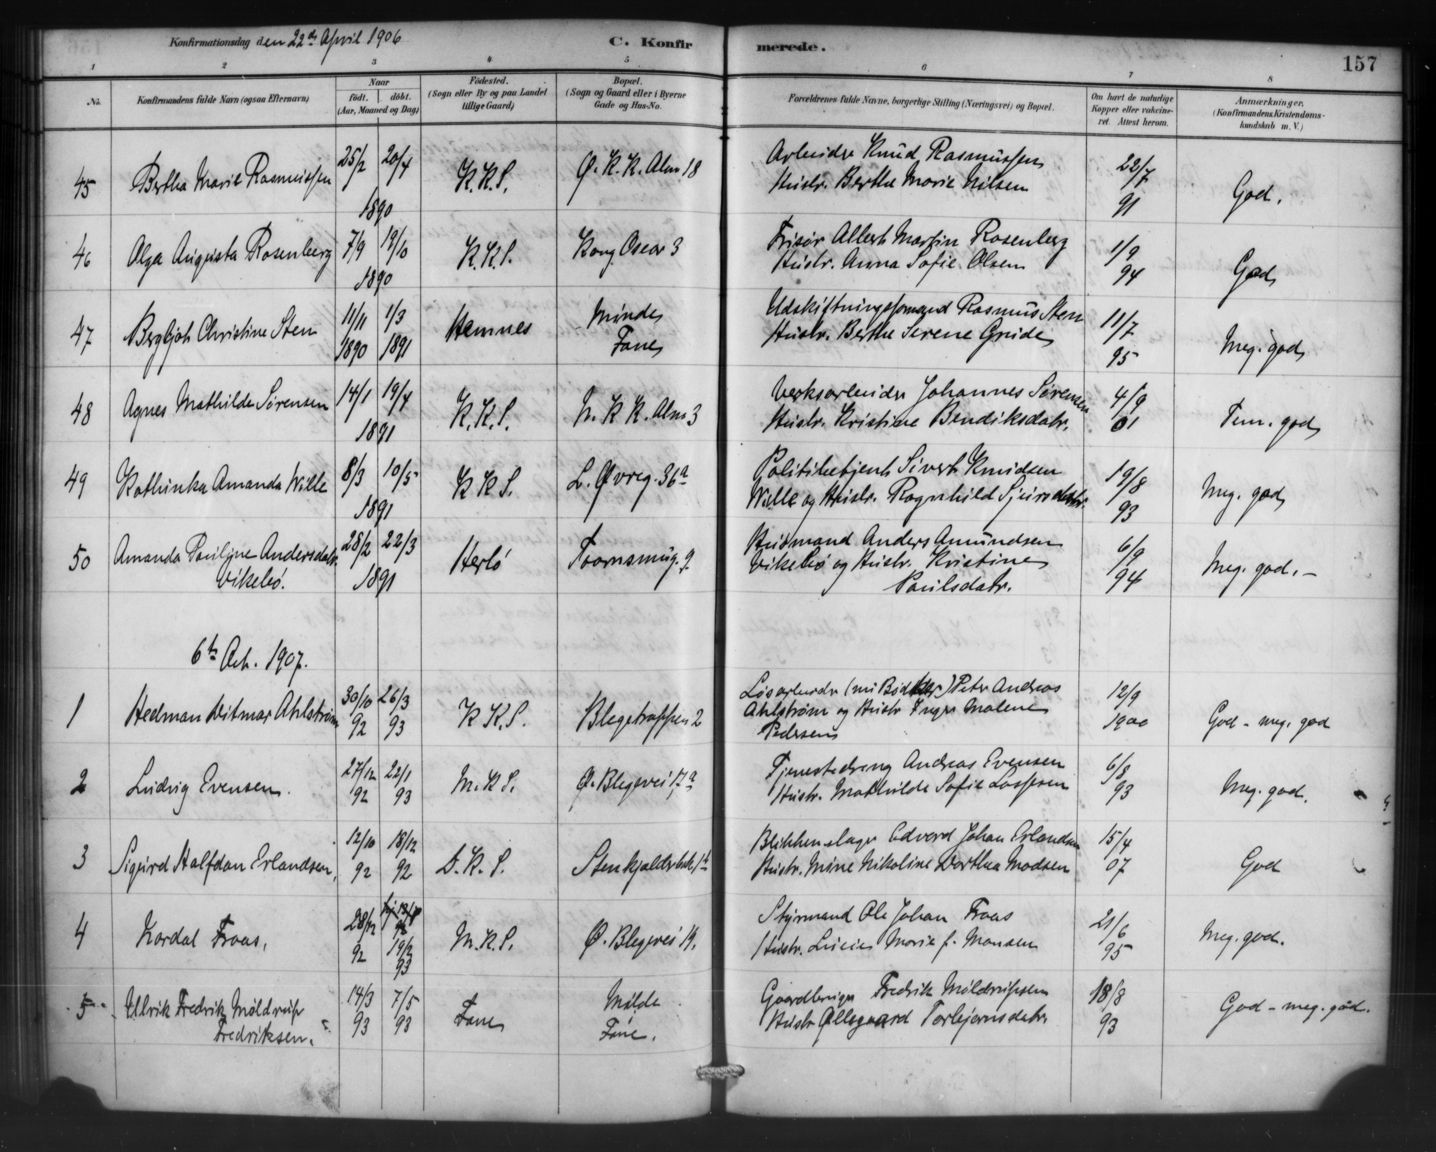 Konfirmationsdag den 22de April 1906
C. Konfirmerede.
157
1 2 3 4 5 6 7 8
No.
Konfirmandens fulde Navn (ogsaa Efternavn)
Naar
født. døbt.
(Aar, Maaned og Dag)
Fødested.
(Sogn eller By og paa Landet
tillige Gaard)
Bopæl.
(Sogn og Gaard eller i Byerne
Gade og Hus-No.
Forældrenes fulde Navne, borgerlige Stilling (Næringsvei) og Bopæl.
Om havt de naturlige
Kopper eller vakcine-
ret. Attest herom.
Anmærkninger.
(Konfirmandens Kristendoms-
kundskab m. V.)
45 Bertha Marie Rasmussen 25/2 20/4 1890 K.K.S. Ø. K. K. Alm 18
Arbeider Knud Rasmussen
Hustr. Berthe Marie Nilsen
22/7 91 God.
46 Olga Augusta Rosenberg 7/9 19/10 1890 K.K.S. Kong Oscar 3
Frisør Albert Martin Rosenberg
Hustr. Anna Sofie Olsen
1/9 94 God
47 Bergljot Christine Sten 11/11 1890 1/3 1891 Hemnes Minde Fane
Udskiftningsformand Rasmus Sten
Hustr. Berthe Serene Grude
11/7 95 Meg. god
48 Agnes Mathilde Sørensen 14/1 19/4 1891 K.K.S. N. K K. Alm 3
Verksarbeider Johannes Sørensen
Hustr. Kristine Bendiksdatr.
4/9 01 Tem. god
49 Kathinka Amanda Wille 8/3 10/5 1891 K K S. L. Øvreg. 36a
Politibetjent Sivert Knudsen
Wille og Hustr. Ragnhild Sjursdatr.
19/8 93 Meg. god
50 Amanda Pauline Andersdatr.
Vikebø. 28/2 22/3 1891 Herlø Taarnsmug. 9
Husmand Anders Amundsen
Vikebø og Hustr. Kristine
Paulsdatr.
6/9 94 Meg. god. –
6te Oct. 1907.
1 Hedman Ditmar Ahlstrøm 30/10 92 26/3 93 K K S. Blegetrappen 2
Løsarbeider (nu Bødker) Peter Andreas
Ahlstrøm og Hustr Inger Malene
Pedersen
12/9 1900 God – meg. god
2 Ludvig Evensen. 27/12 92 22/1 93 M.K S. Ø. Blegevei 17a
Tjenestedreng Andreas Evensen
Hustr. Mathilde Sofie Lassesen
6/8 93 Meg. god.
3 Sigurd Halfdan Erlandsen, 12/10 92 18/12 92 D.K.S. Stenkjelderbk. 1b
Blikkenslager Edvard Johan Erlandsen
Hustr. Mine Nikoline Dorthea Madsen
15/4 07 God
4 Kordal Traas, 28/12 92 19/2 93 M.K.S. Ø. Blegevei 19.
Styrmand Ole Johan Traas
Hustr. Lucie Marie f. Monsen
21/6 95 Meg. god.
5 Ulrik Fredrik Møldrup
Fredriksen. 14/3 93 7/5 93 Fane Milde Fane.
Gaardbruger Fredrik Møldrupsen
Hustr Ollegaard Torbjørnsdatr.
18/8 93 God – meg. god.